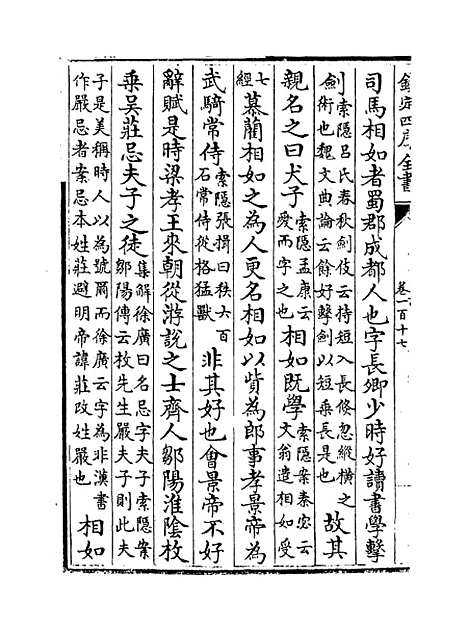 欽定四庫全書
卷一百十七
司馬相如者蜀郡成都人也字長卿少時好讀書學擊
劍索隱呂氏春秋劍伎云持短入長倏忽縱橫之術也魏文典論云餘好擊劍以短乗長是也故其
親名之曰犬子索隱孟康云愛而字之也相如既學索隱案秦宓云文翁遣相如受
七經慕藺相如之為人更名相如以貲為郎事孝景帝為
武騎常侍索隱張揖曰秩六百石常侍從格猛獸非其好也會景帝不好
辭賦是時梁孝王來朝從游說之士齊人鄒陽淮陰枚
乗吳莊忌夫子之徒集解徐廣曰名忌字夫子索隱案鄒陽傳云枚先生嚴夫子則此夫
子是美稱時人以為號爾而徐廣云字為非漢書作嚴忌者案忌本姓莊避明帝諱莊改姓嚴也相如